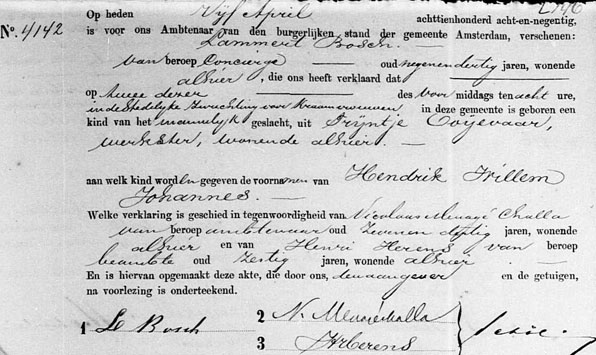 Nº. 4142
Op heden Vijf April achttienhonderd acht-en-negentig,
is voor ons Ambtenaar van den burgerlijken stand der gemeente Amsterdam, verschenen:
Lammert Bosch. —
van beroep Concierge — oud negenendertig jaren, wonende
alhier, die ons heeft verklaard dat —
op twee dezer — des voor middags ten acht ure,
in de Stedelijke Inrichting voor Kraamvrouwen, in deze gemeente is geboren een
kind van het mannelijk geslacht, uit Trijntje Ooyevaar,
werkster, wonende alhier. —
aan welk kind worden gegeven de voornamen van Hendrik Willem
Johannes. —
Welke verklaring is geschied in tegenwoordigheid van Nicolaas Menagé Challa
van beroep ambtenaar oud Zevenendertig jaren, wonende
alhier en van Henri Herens van beroep
beambte oud Zestig jaren, wonende alhier. —
En is hiervan opgemaakt deze akte, die door ons, den aangever en de getuigen,
na voorlezing is onderteekend.
1 L Bosch
2 N. Menagé Challa
3 H Herens